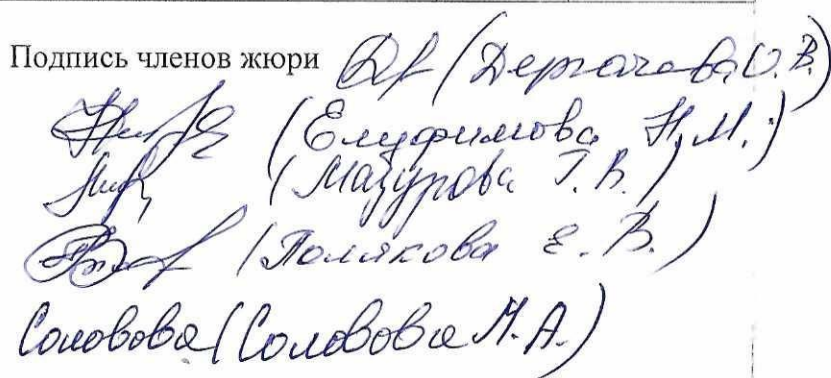 Подпись членов жюри (Дергачева О.В.)
(Елуфимова Н.М.)
(Мазурова Г.В.)
(Полякова Е.В.)
Соловова (Соловова М.А.)